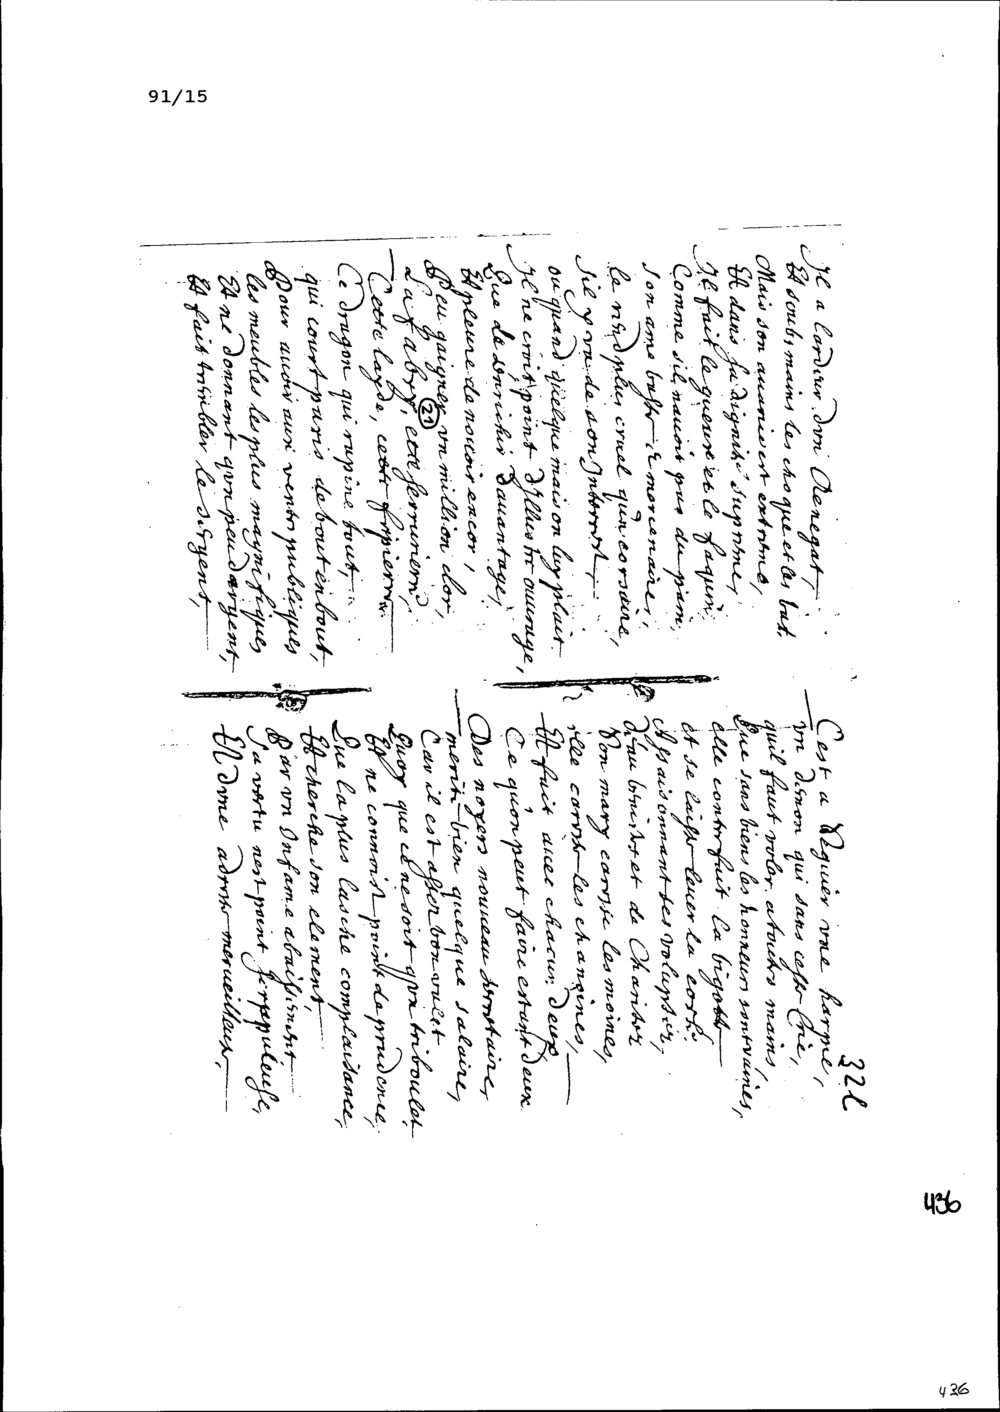 91/15
Il a lardeur dun Renegat,
Et soubs mains les choque et les bat.
Mais son auarice est extreme,
Et dans sa dignité supreme,
Il fait le gueux et le faquin
Comme sil nauoit pas du pain,
son ame basse et mercenaire,
le rend plus cruel qun corsaire,
sil y va de son Interest,
ou quand quelque maison luy plaist
Il ne croit point dillustre ouurage,
Que de senrichir dauantage,
Et pleure de nauoir encor,
Peu gaigner vn million dor,
La fabry, cette ferruniere,
21
Cette layde, cette fripiere
Ce dragon qui rapine tout,
qui court paris de bout en bout,
Pour auoir aux ventes publiques
les meubles les plus magnifiques
Et ne donnant qvn peu dargent,
Et fait trembler le sergent,
322
C'est a Seguier vne harpie,
vn demon qui sans cesse crie,
quil faut voler a toutes mains
Que sans biens les honneurs sont vaines,
elle contrefait la bigotte
et se laisse leuer la cotte
Assaisonnant ses voluptez,
d'eau beniste et de Charitez
son mary caresse les moines,
elle caresse les chanoines,
Et fait auec chacun deux
Ce qu'on peut faire estant deux
Des noyers nouueau secretaire,
merite bien quelque salaire,
Car il est assez bon valet
Quoy que ce ne soit qvn triboulet
Et ne connoist point de prudence,
Que la plus lasche complaisance,
Et cherche son element
Par vn Infame abaissement
Sa vertu nest point scrupuleuse,
Et dvne adresse merueilleuse,
436
436